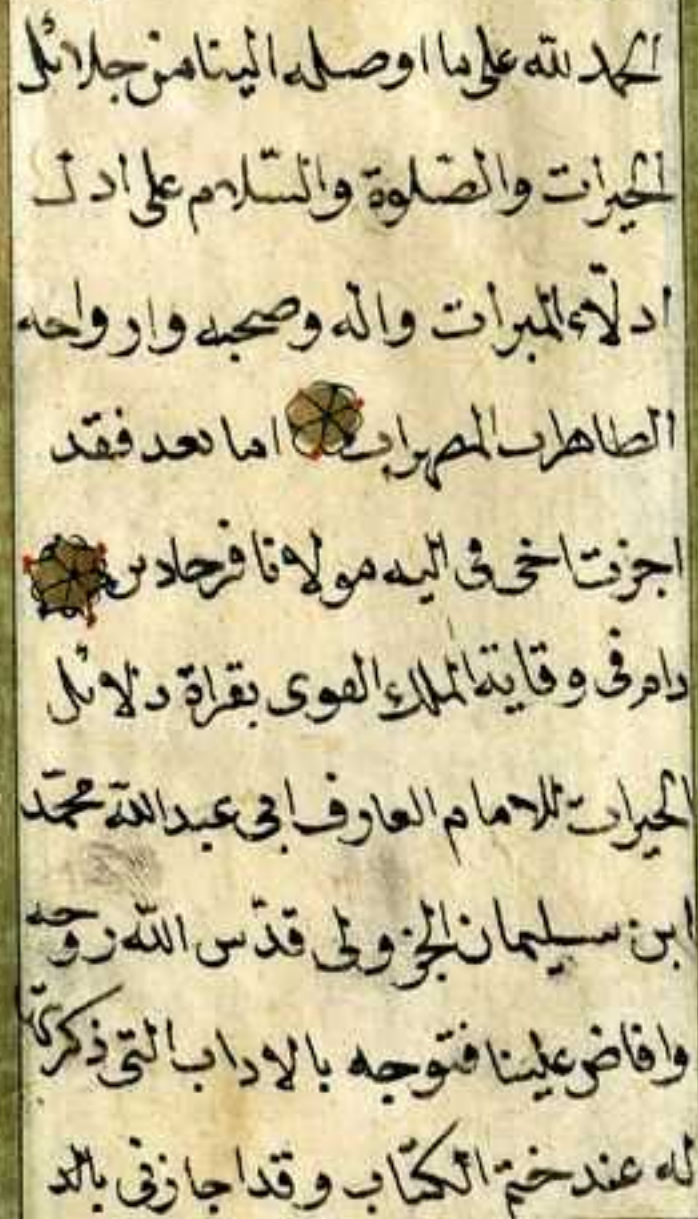 الحمد لله على ما اوصله الينا من جلائل
الخيرات والصلوة والسلام على ادل
ادلاء المبرات واله وصحبه وازواجه
الطاهرات المطهرات اما بعد فقد
اجزت اخي في اليه مولانا
دام في وقاية الملك القوى بقراة دلائل
الخيرات للامام العارف ابى عبد الله محمد
ابن سليمان الجزولى قدس الله روحه
وافاض علينا فتوحه بالاداب التى ذكرتها
له عند ختم الكتاب وقد اجازنى